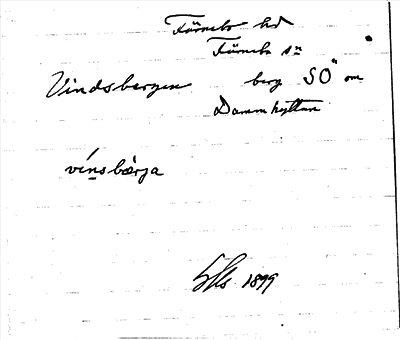 Färnebo hd
Färnebo sn
Vindsbergen berg SÖ om
Dammhyttan
vínsbærja
1899